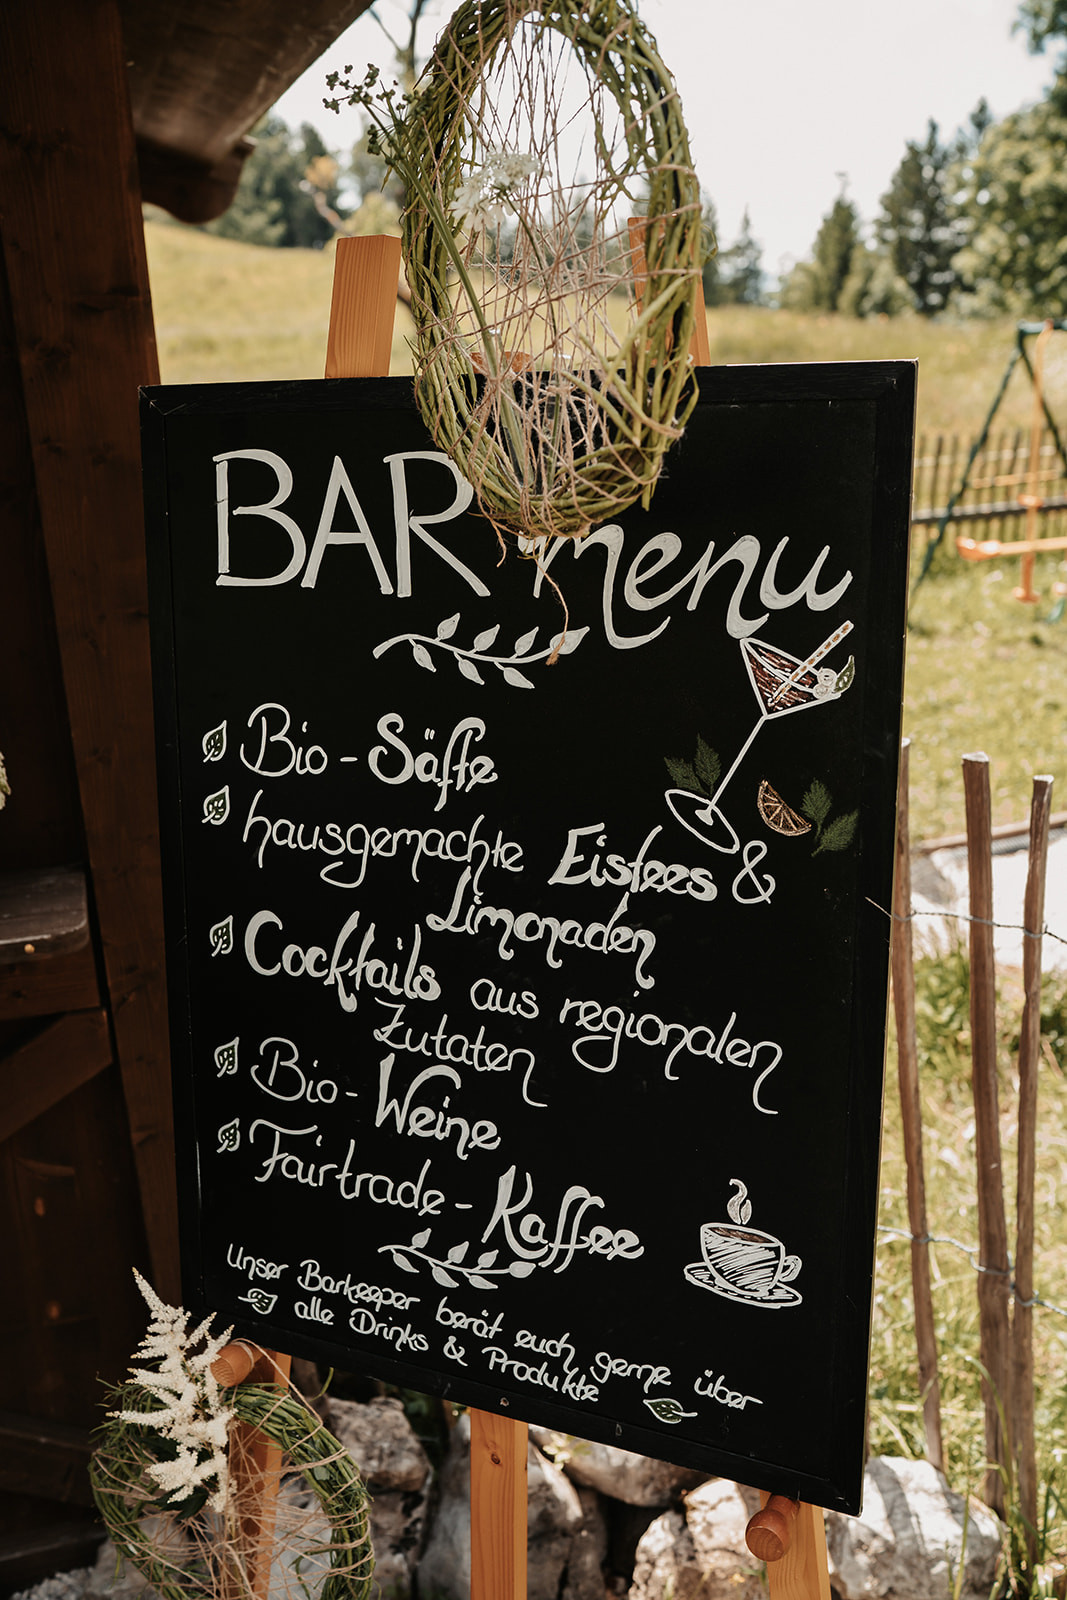 BAR menu
Bio-Säfte
hausgemachte Eistees &
Limonaden
Cocktails aus regionalen
Zutaten
Bio-Weine
Fairtrade-Kaffee
Unser Barkeeper berät euch gerne über
alle Drinks & Produkte